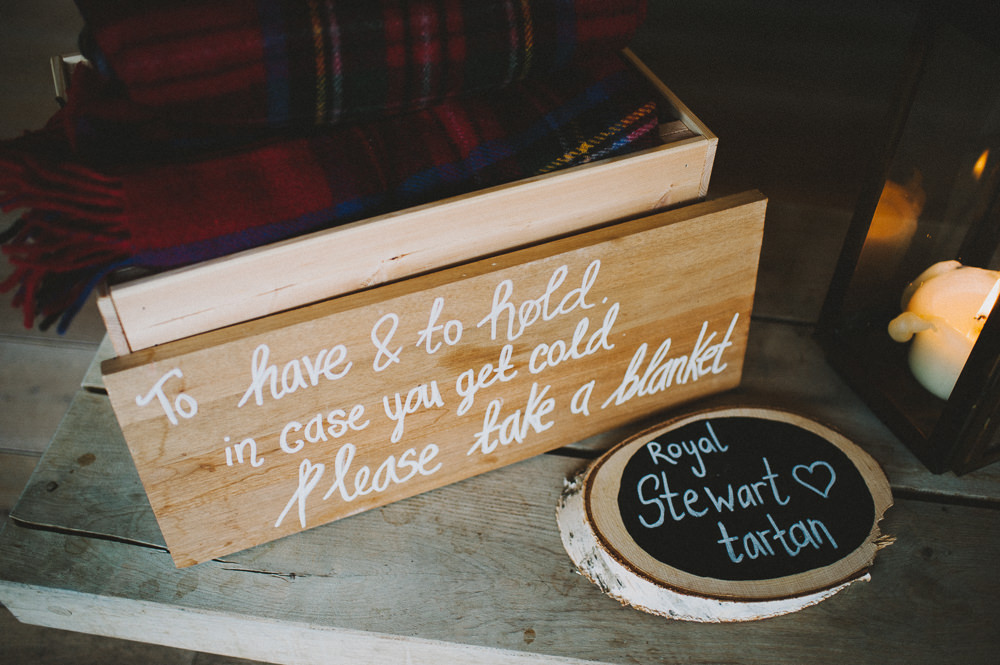 To have & to hold.
in case you get cold.
Please take a blanket
Royal
Stewart
tartan